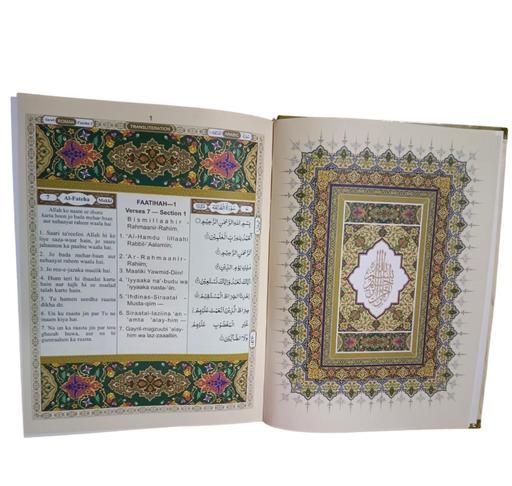 1
ROMAN
TRANSLITERATION
ARABIC
7
Al-Fateha
Makki
Allah ke naam se shuru
karta hoon jo bada mehar-baan
aur nehaayat rahem waala hai.
1. Saari ta'reefen Allah hi ke
liye saza-waar hain, jo saare
jahaanon ka paalne waala hai.
2. Jo bada mehar-baan
aur nehaayat rahem waala hai.
3. Jo roz-e-jaza ka maalik hai.
4. Ham teri hi ibaadat karte
hain aur tujh hi se madad
talab karte hain.
5. Tu hamen seedha raasta
dikha de.
6. Un ka raasta jin par Tu ne
inaam kiya hai.
7. Na un ka raasta jin par tera
ghazab huwa, aur na hi
gumraahon ka raasta.
FAATIHAH—1
Verses 7 — Section 1
Bismillaahir
Rahmaanir-Rahiim.
1. 'Al-Hamdu lillaahi
Rabbil-'Aalamiin;
2. 'Ar-Rahmaanir-
Rahiim,
3. Maaliki Yawmid-Diin!
4. 'Iyyaaka na'-budu wa
'iyyaaka nasta-'iin.
5. 'Ihdinas-Siraatal-
Musta-qiim —
6. Siraatal-laziina 'an-
'amta 'alay-him —
7. Gayril-magzuubi 'alay-
him wa laz-zaaalliin.
سورة الفاتحة
بسم الله الرحمن الرحيم
الحمد لله رب العلمين
الرحمن الرحيم
ملك يوم الدين
اياك نعبد واياك نستعين
اهدنا الصراط المستقيم
صراط الذين انعمت عليهم
غير المغضوب عليهم
ولا الضالين